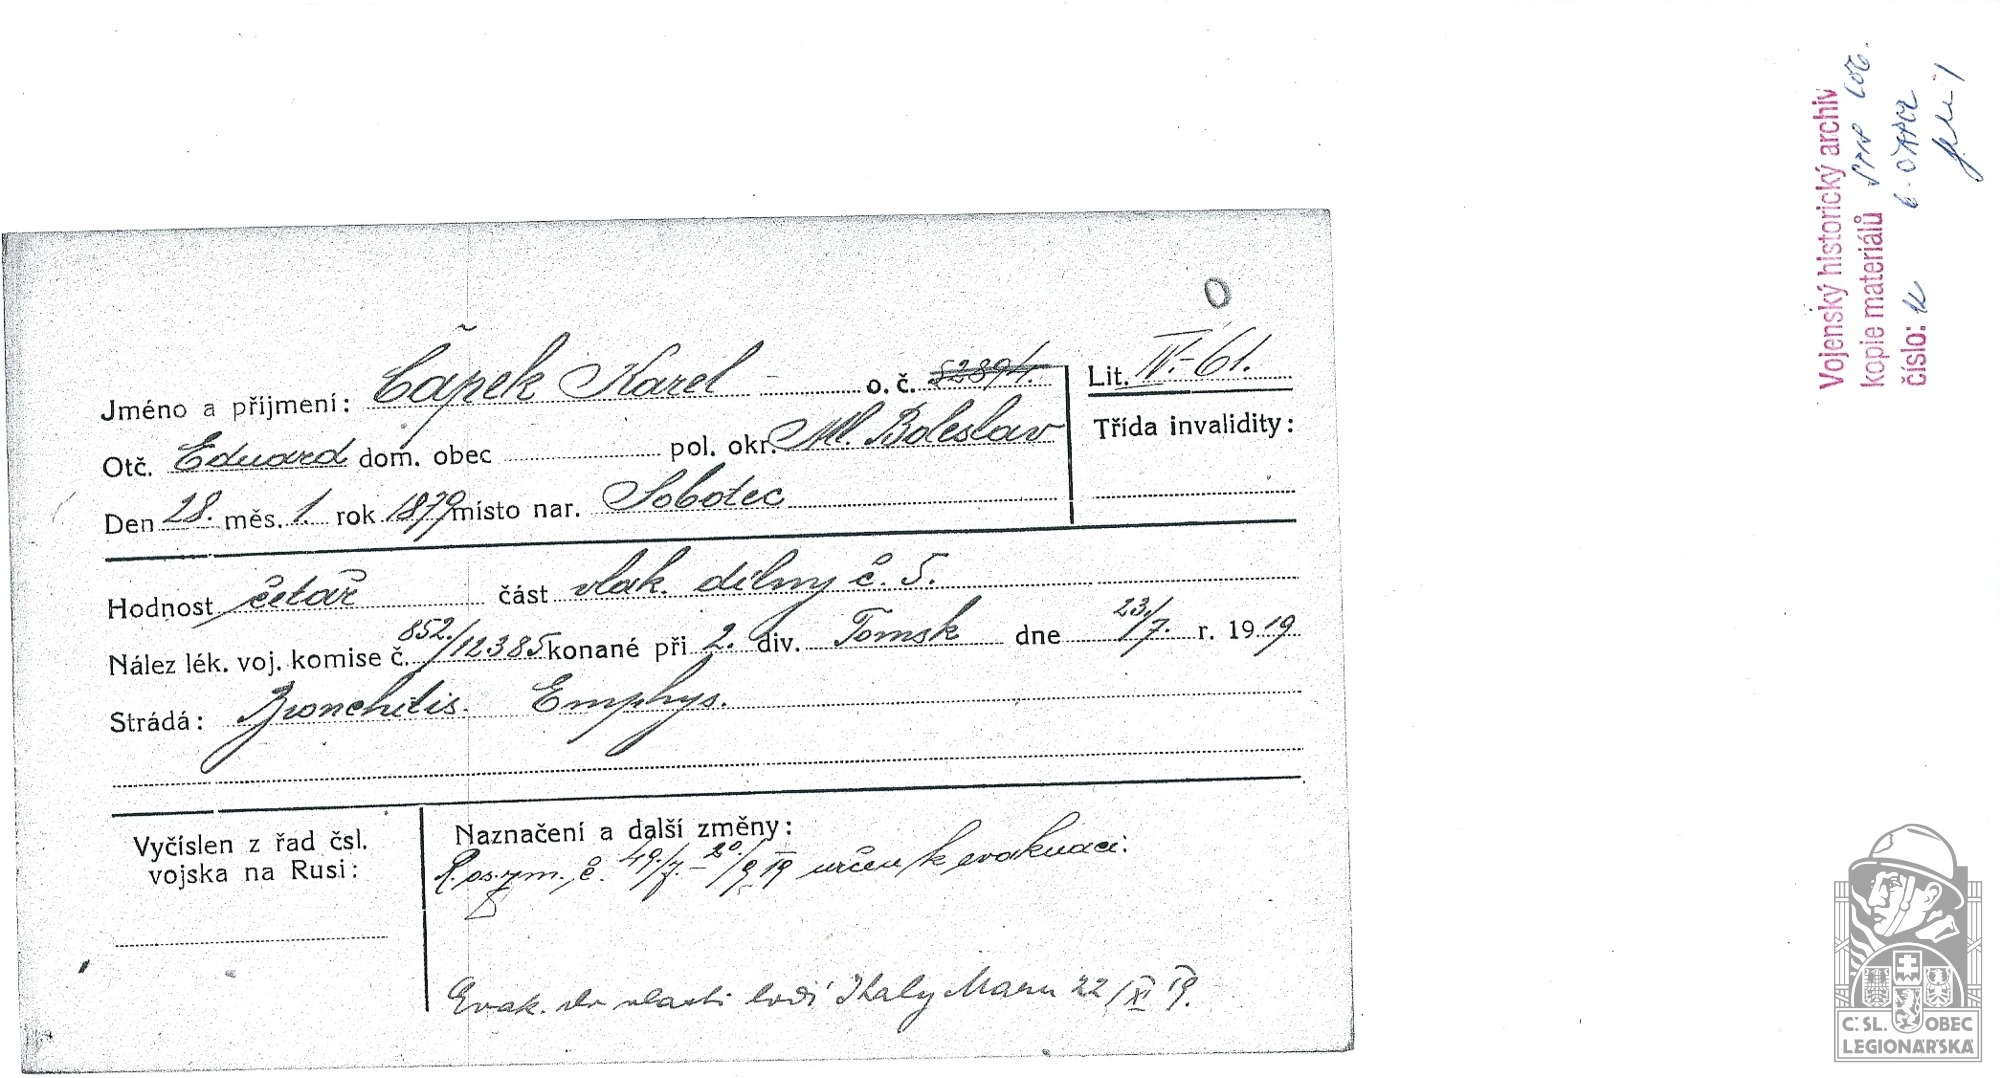 O
Jméno a příjmení: Čápek Karel o. č. 52894. Lit. IV.-61.
Otč. Eduard dom. obec pol. okr. Ml. Boleslav Třída invalidity:
Den 28. měs. 1. rok 1879 místo nar. Sobotec
Hodnost četař část vlak. dílny č. 5.
Nález lék. voj. komise č. 852./12385 konané při 2. div. Tomsk dne 23/7. r. 1919
Strádá: Bronchitis. Emphys.
Vyčíslen z řad čsl. vojska na Rusi:
Naznačení a další změny:
č. 49/7. - 20/9 19 určen k evakuaci.
Evak. do vlasti lodí Ithaly Maru 22/XI 19.
Vojenský historický archiv
kopie materiálů
číslo:
Č. SL. OBEC
LEGIONÁŘSKÁ